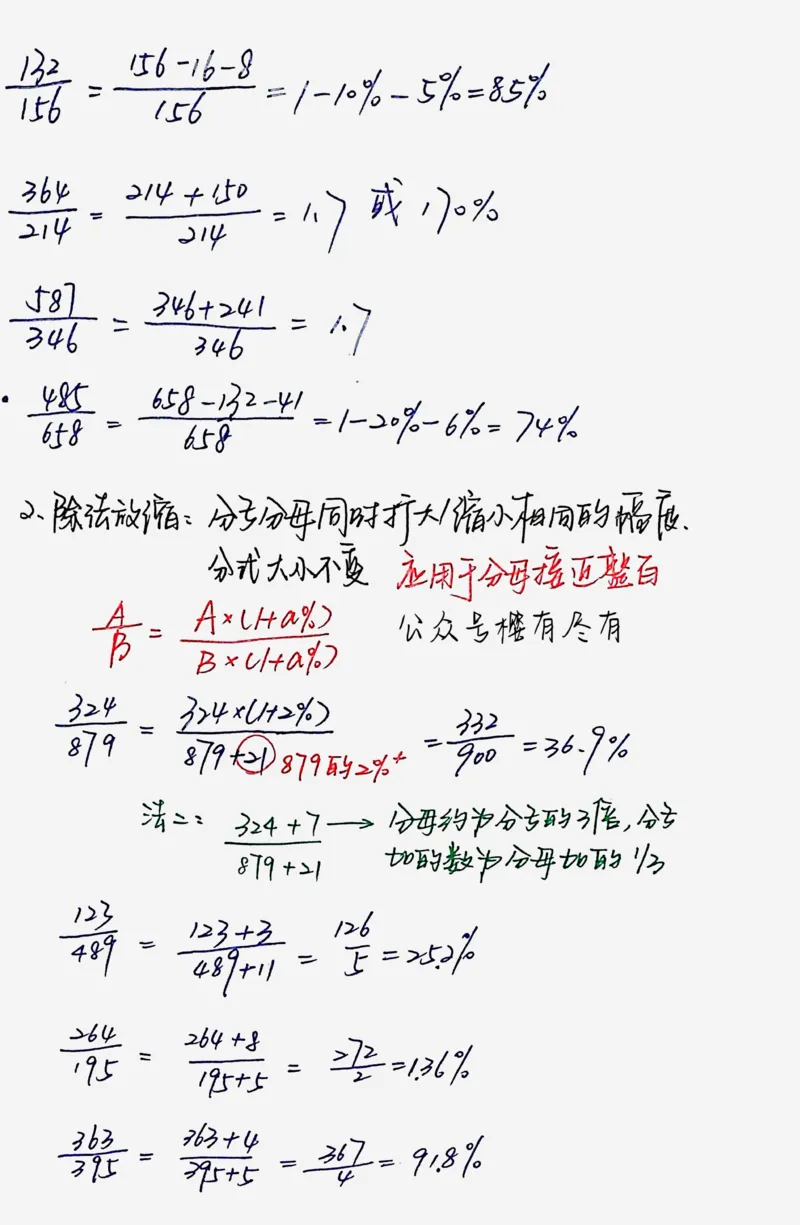 132/156 = (156-16-8)/156 = 1-10%-5%=85%
364/214 = (214+150)/214 = 1.7 或 170%
587/346 = (346+241)/346 = 1.7
· 485/658 = (658-132-41)/658 = 1-20%-6%= 74%
2、除法放缩: 分子分母同时扩大/缩小相同的幅度、
分式大小不变 应用于分母接近整百
A/B = A×(1+a%)/B×(1+a%) 公众号楼有尽有
324/879 = 324×(1+2%)/(879+21) 879的2%+ = 332/900 = 36.9%
法二: (324+7)/(879+21) → 分母约为分子的3倍,分子
加的数为分母加的 1/3
123/489 = (123+3)/(489+11) = 126/5 = 25.2%
264/195 = (264+8)/(195+5) = 272/2 = 1.36%
363/395 = (363+4)/(395+5) = 367/4 = 91.8%